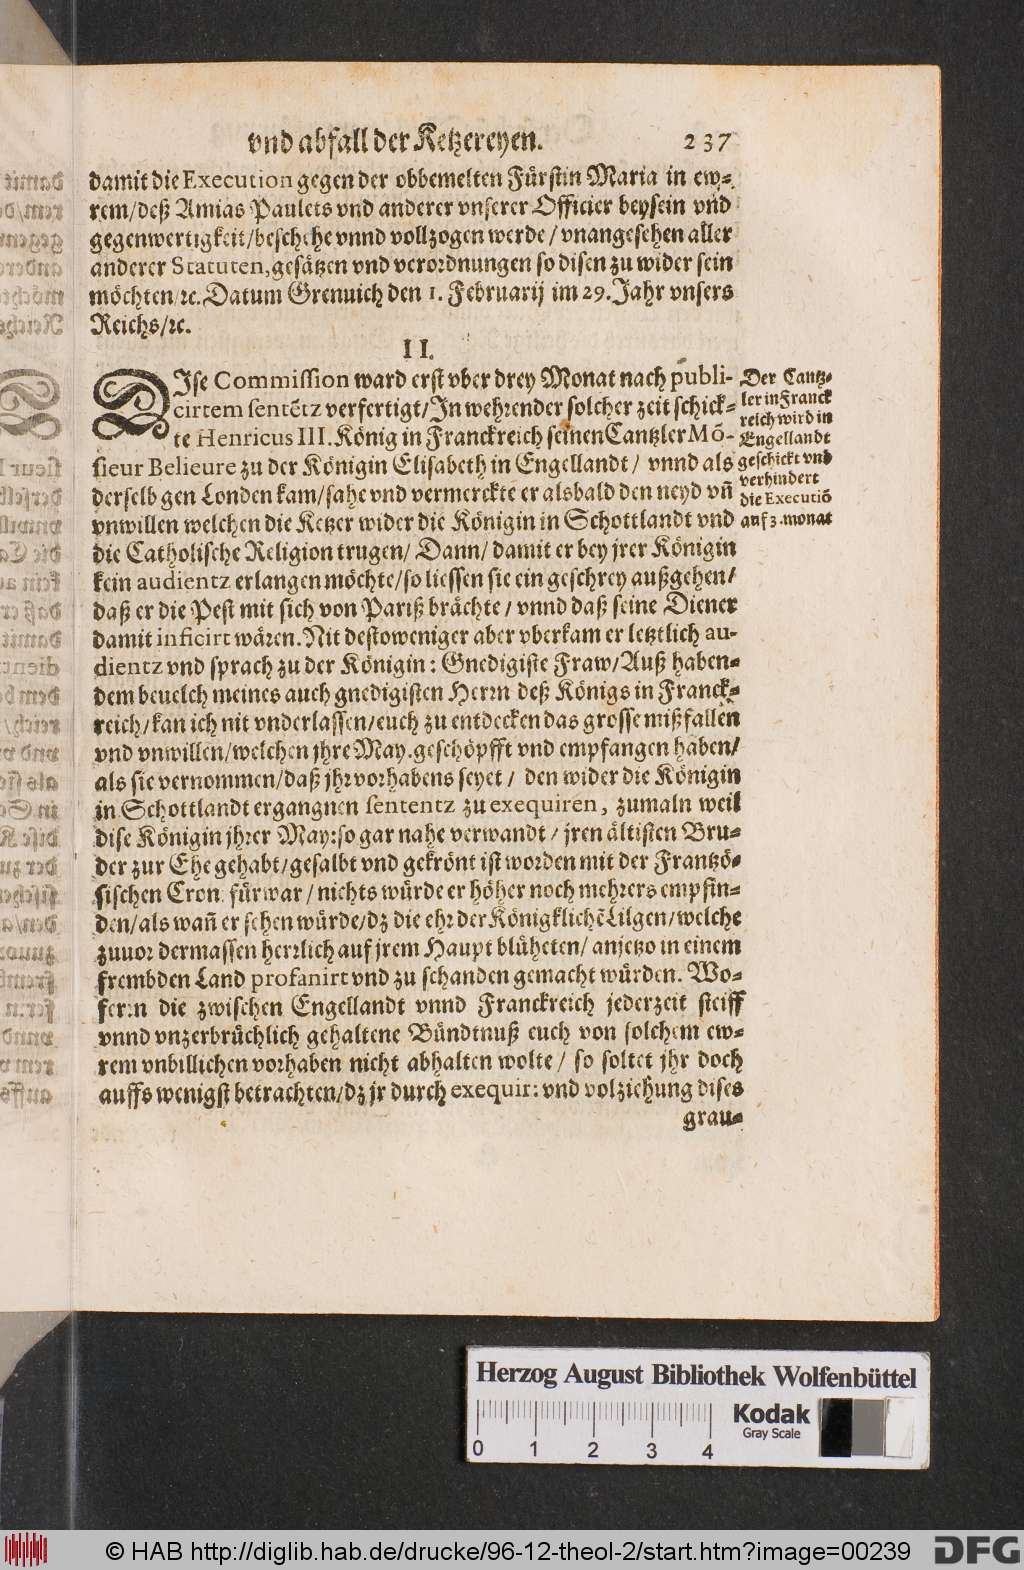 vnd abfall der Ketzereyen. 237
damit die Execution gegen der obbemelten Fürstin Maria in ew-
rem/deß Amias Paulets vnd anderer vnserer Officier beysein vnd
gegenwertigkeit/beschehe vnnd vollzogen werde/vnangesehen aller
anderer Statuten,gesätzen vnd verordnungen so disen zu wider sein
möchten/ꝛc.Datum Grenuich den 1. Februarij im 29.Jahr vnsers
Reichs/ꝛc.
II.
DIse Commission ward erst vber drey Monat nach publi-
cirtem sentẽtz verfertigt/In wehrender solcher zeit schick-
te Henricus III. König in Franckreich seinen Cantzler Mõ-
sieur Belieure zu der Königin Elisabeth in Engellandt/ vnnd als
derselb gen Londen kam/sahe vnd vermerckte er alsbald den neyd vñ
vnwillen welchen die Ketzer wider die Königin in Schottlandt vnd
die Catholische Religion trugen/ Dann/ damit er bey jrer Königin
kein audientz erlangen möchte/so liessen sie ein geschrey außgehen/
daß er die Pest mit sich von Pariß brächte/ vnnd daß seine Diener
damit inficirt wären. Nit destoweniger aber vberkam er letztlich au-
dientz vnd sprach zu der Königin: Gnedigiste Fraw/Auß haben-
dem beuelch meines auch gnedigisten Herrn deß Königs in Franck-
reich/kan ich nit vnderlassen/euch zu entdecken das grosse mißfallen
vnd vnwillen/welchen jhre May.geschöpfft vnd empfangen haben/
als sie vernommen/daß jhr vorhabens seyet/ den wider die Königin
in Schottlandt ergangnen sententz zu exequiren, zumaln weil
dise Königin jhrer May:so gar nahe verwandt/ jren ältisten Bru-
der zur Ehe gehabt/gesalbt vnd gekrönt ist worden mit der Frantzö-
sischen Cron. fürwar/ nichts würde er höher noch mehrers empfin-
den/als wañ er sehen würde/dz die ehr der Königklichẽ Lilgen/welche
zuuor dermassen herrlich auf jrem Haupt blüheten/ anjetzo in einem
frembden Land profanirt vnd zu schanden gemacht würden. Wo-
fern die zwischen Engellandt vnnd Franckreich jederzeit steiff
vnnd vnzerbrüchlich gehaltene Bündtnuß euch von solchem ew-
rem vnbillichen vorhaben nicht abhalten wolte/ so soltet jhr doch
auffs wenigst betrachten/dz jr durch exequir: vnd volziehung dises
grau-
Der Cantz-
ler in Franck
reich wird in
Engellandt
geschickt vnd
verhindert
die Executiõ
auf 3.monat
Herzog August Bibliothek Wolfenbüttel
0 1 2 3 4
Kodak
Gray Scale
© HAB http://diglib.hab.de/drucke/96-12-theol-2/start.htm?image=00239
DFG